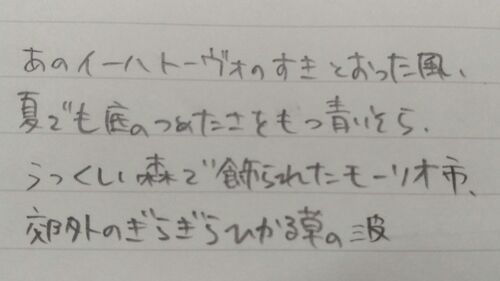 あのイーハトーヴォのすきとおった風、
夏でも底のつめたさをもつ青いそら、
うつくしい森で飾られたモーリオ市、
郊外のぎらぎらひかる草の波